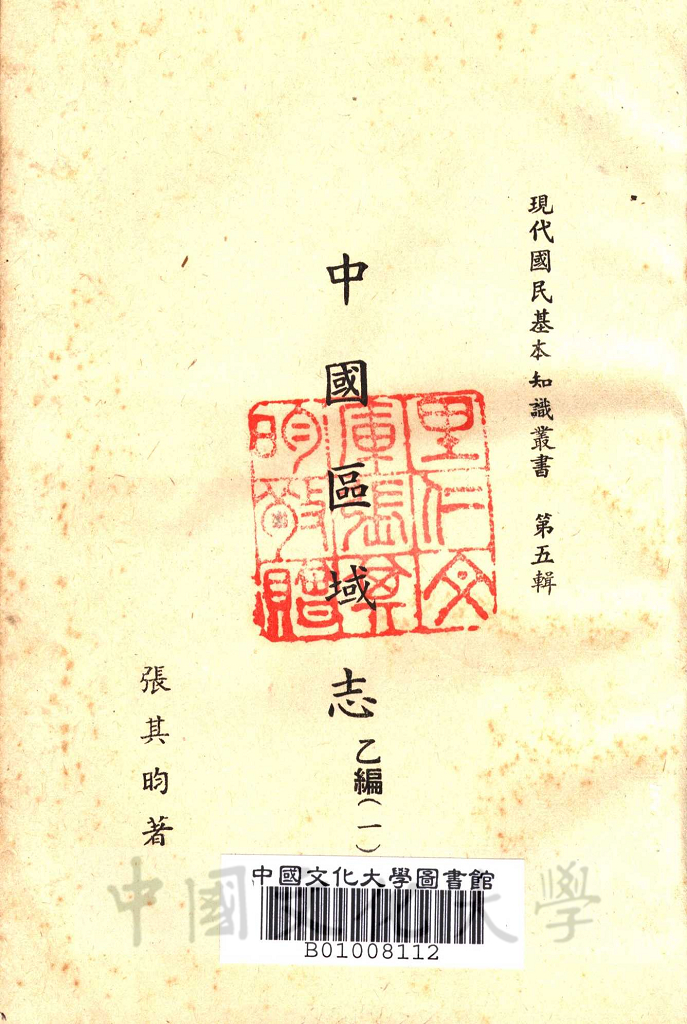 現代國民基本知識叢書 第五輯
中國區域志 乙編(一)
里仁文庫張其昀敬贈
張其昀著
中國文化大學圖書館
B01008112
中國文化大學